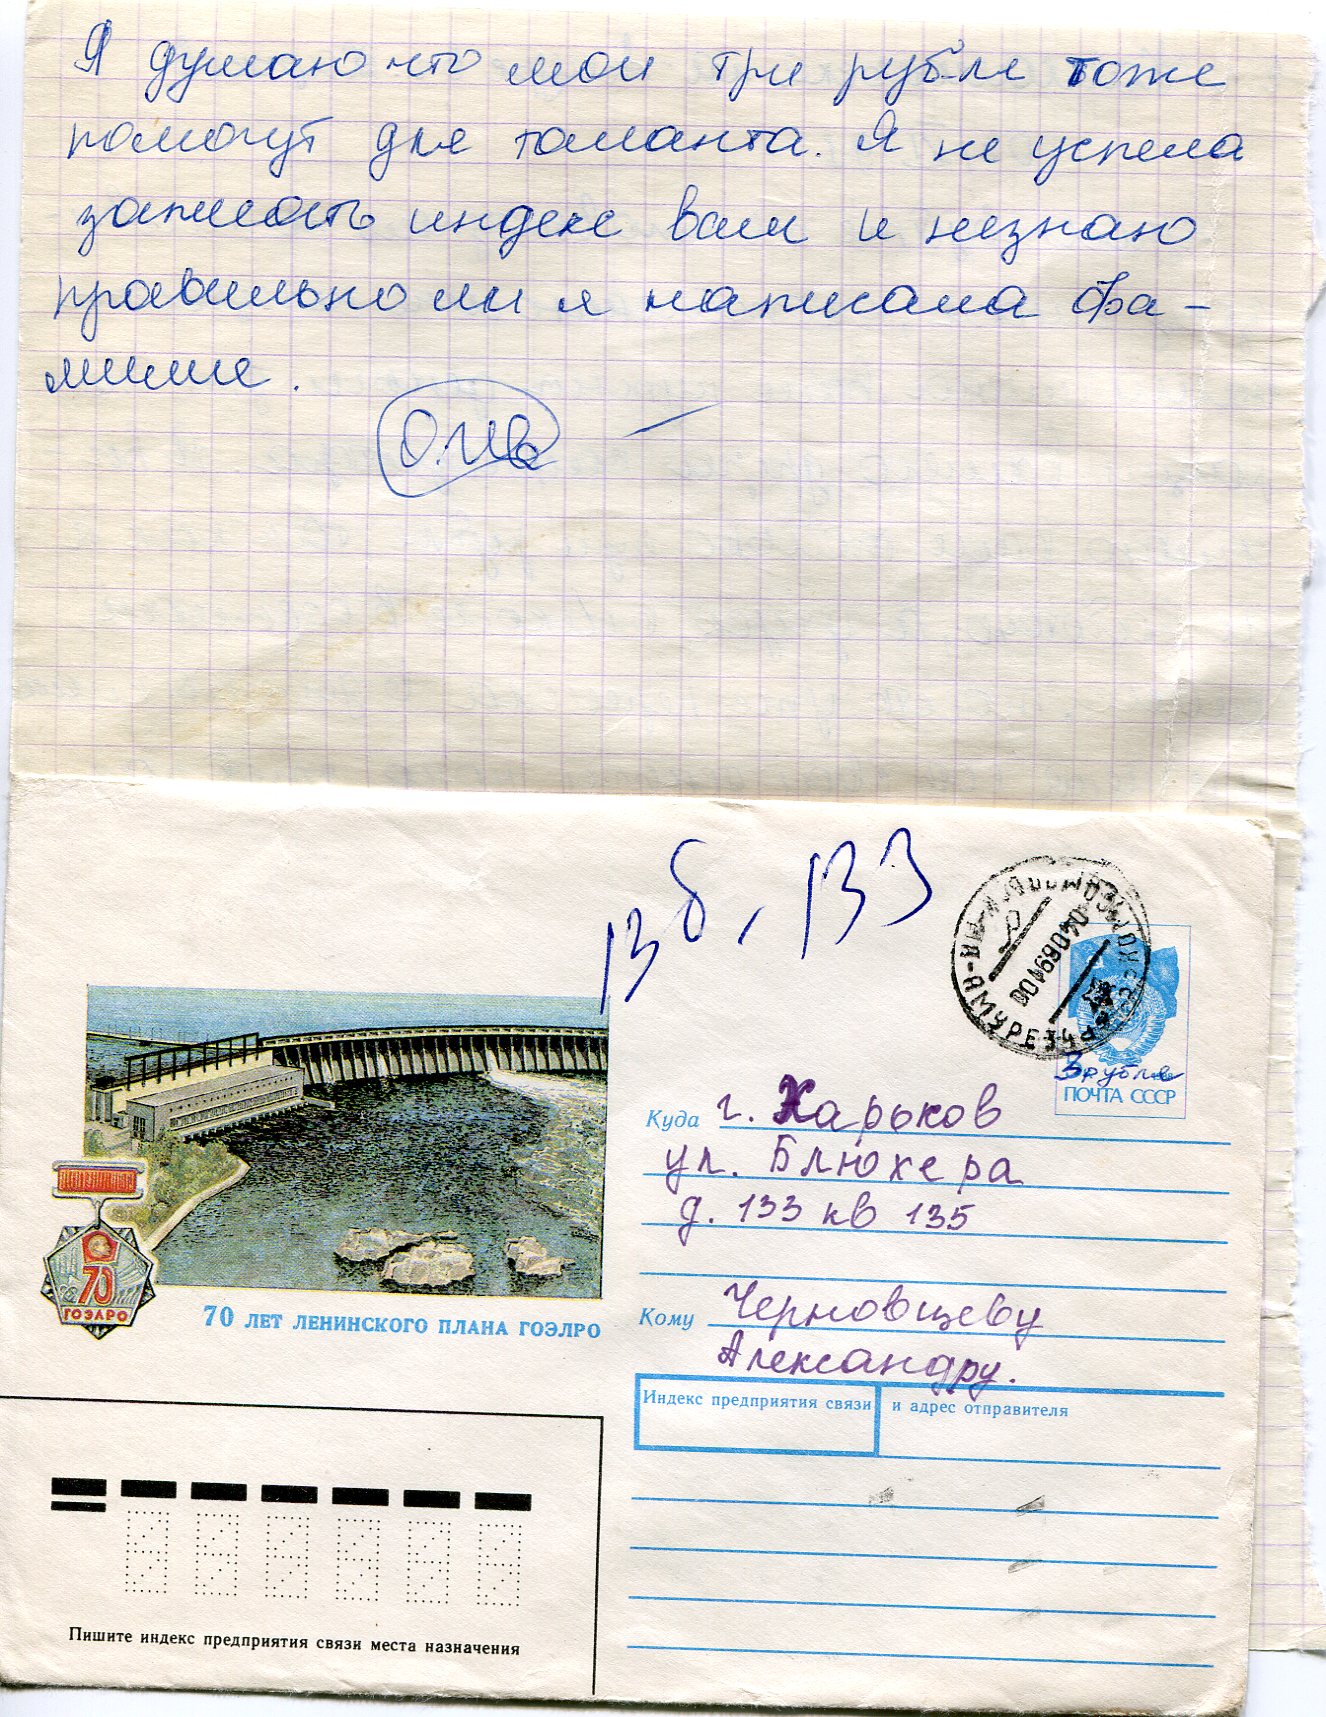 Я думаю что мои три рубля тоже
помогут для таланта. Я не успела
записать индекс ваш и незнаю
правильно ли я написала фа-
милие.
О.Ив
13б, 133
3 рубля
ПОЧТА СССР
Куда г. Харьков
ул. Блюхера
д. 133 кв 135
70
ГОЭЛРО
70 ЛЕТ ЛЕНИНСКОГО ПЛАНА ГОЭЛРО
Кому Черновцеву
Александру.
Индекс предприятия связи и адрес отправителя
Пишите индекс предприятия связи места назначения